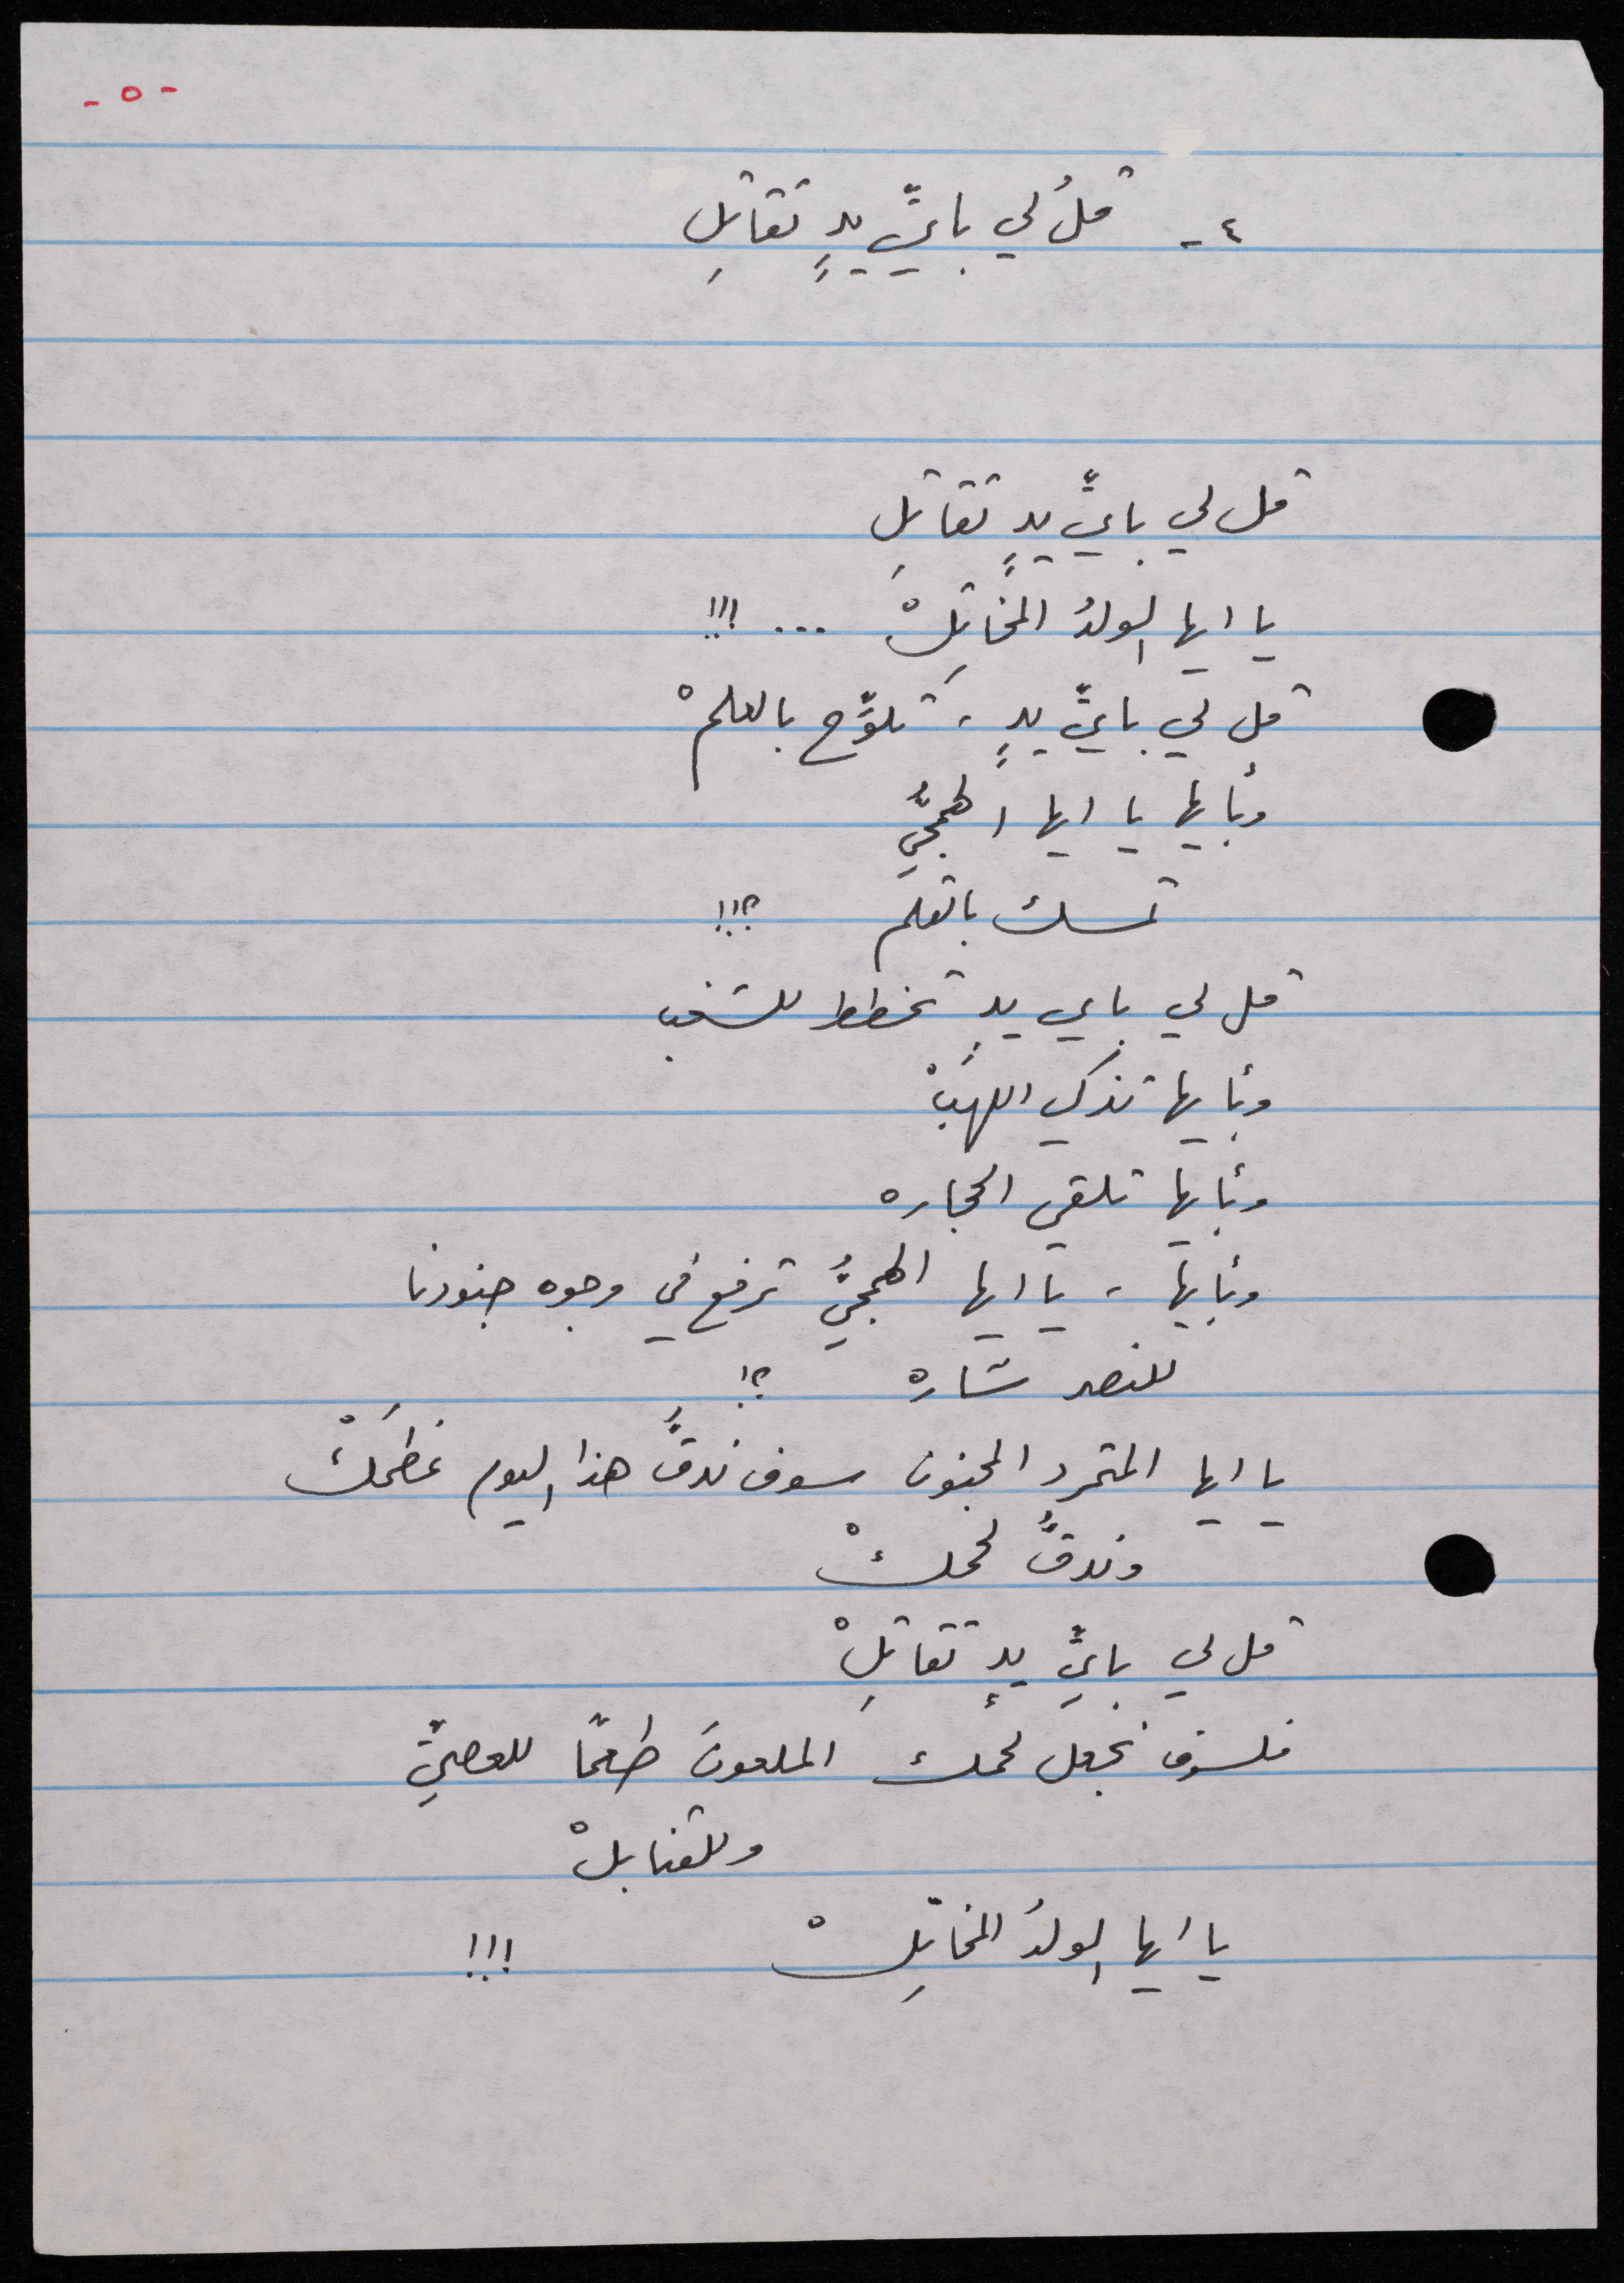 - ٥ -
٤ - قلُ لي بايِّ يدٍ تقاتلِ
قل لي بايِّ يدٍ تقاتلِ
يا ايها الولدُ المخاتِلْ ... !!!
قل لي بايِّ يدٍ ، تلوِّح بالعلمْ
وبأيها يا ايها الهمجيُّ
تمسك بالقلم ؟!!
قل لي باي يدٍ تخطط للشغب
وبأيها تذكي اللهبْ
وبأيها تلقي الحجاره
وبأيها ، يا ايها الهمجيُّ ترفع في وجوه جنودنا
للنصر شاره ؟!
يا ايها المتمرد المجنون سوف ندقُّ هذا اليوم عظمَكْ
وندقُّ لحمكْ
قل لي بايِّ يدٍ تقاتلْ
فلسوف نجعل لحمك الملعونَ طعمًا للعصيِّ
وللقنابلْ
يا ايها الولدُ المخاتِلْ !!!